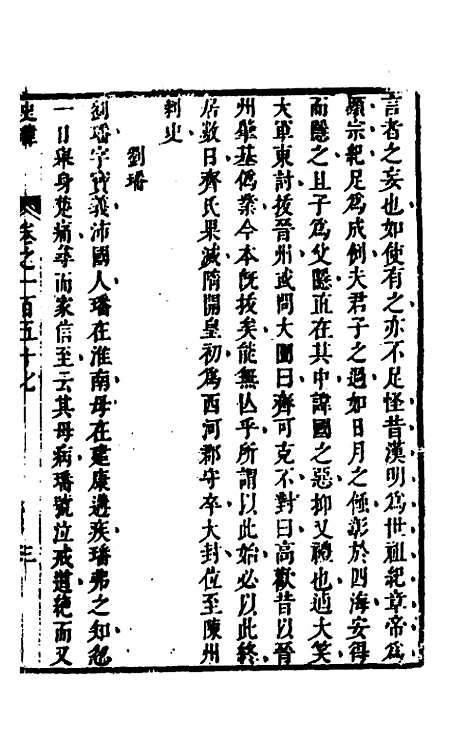 言者之妄也如使有之亦不足怪昔漢明爲世祖紀章帝爲
顯宗紀足爲成例夫君子之過如日月之蝕彰於四海安得
而隱之且子爲父隱直在其中諱國之惡抑又禮也遒大笑
大軍東討拔晉州武問大圜曰齊可克不對曰高歡昔以晉
州肇基僞業今本旣拔矣能無亡乎所謂以此始必以此終
居數日齊氏果滅隋開皇初爲西河郡守卒大封位至陳州
刺史
劉璠
劉璠字寶義沛國人璠在淮南母在建康遘疾璠弗之知忽
一日舉身楚痛尋而家信至云其母病璠號泣戒道絶而又
史緯
卷之一百五十七
三